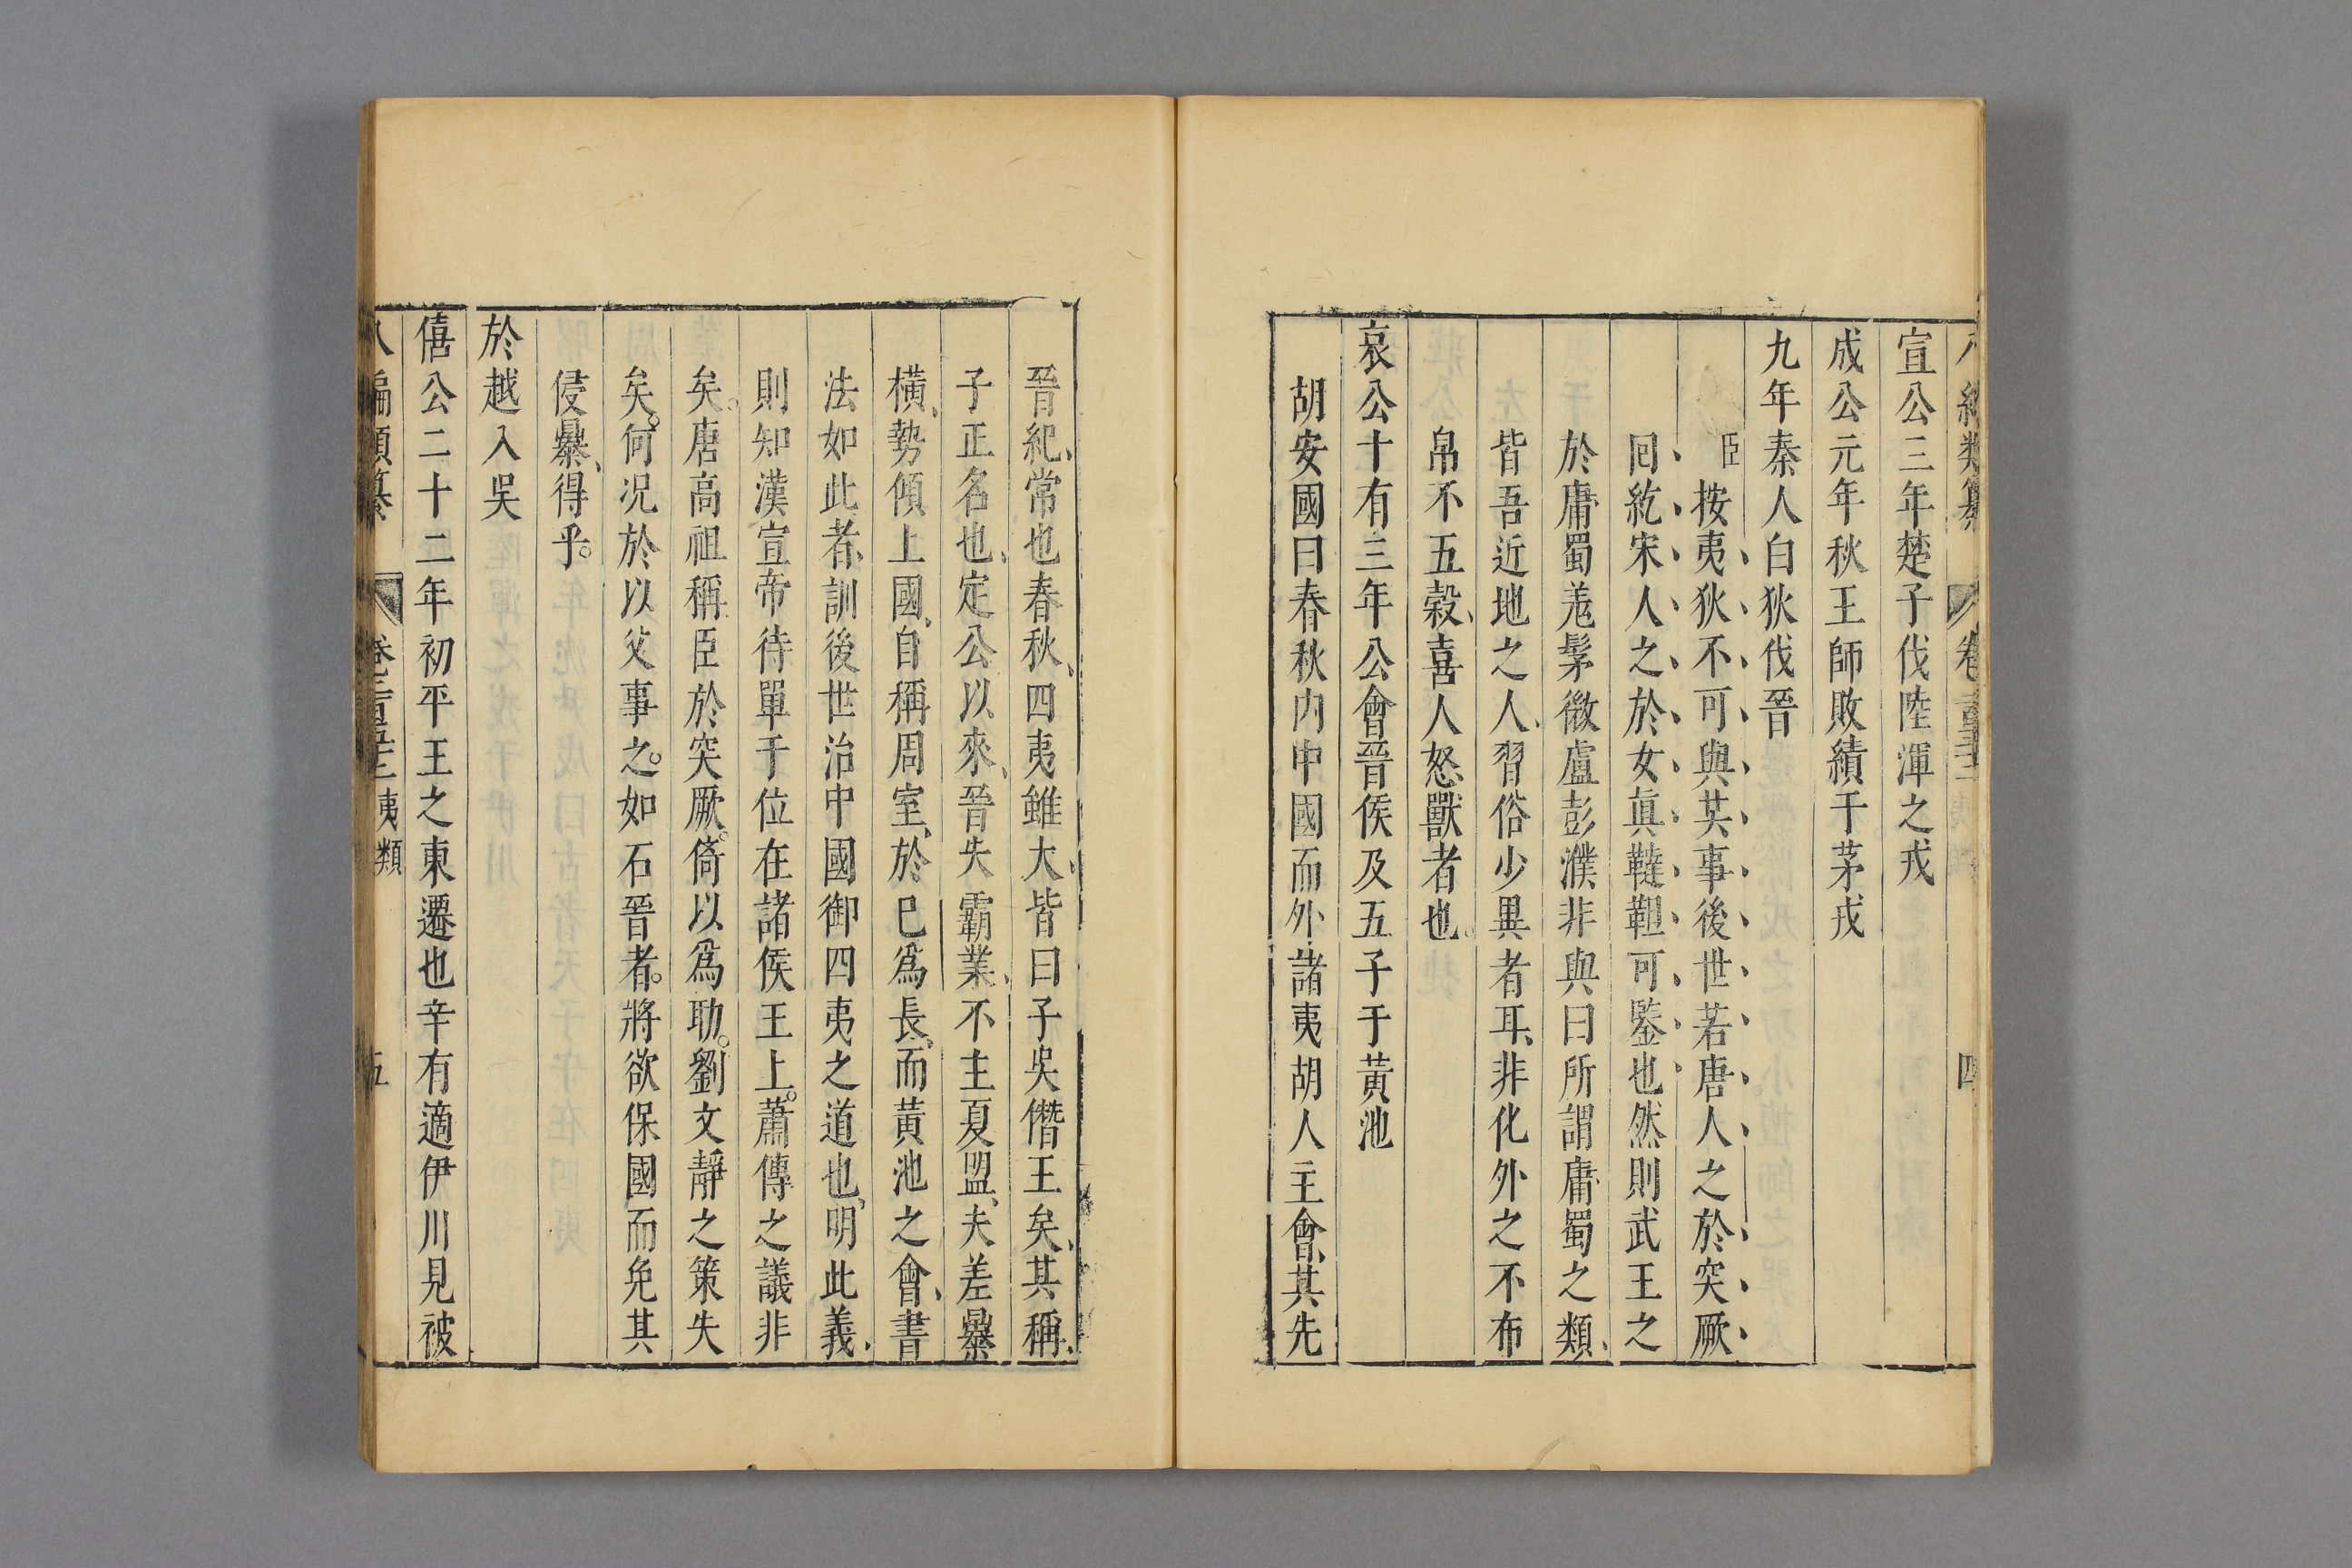 宣公三年楚子伐陸渾之戎
成公元年秋王師敗績于茅戎
九年秦人白狄伐晉
臣按夷狄不可與其事後世若唐人之於突厥
回紇宋人之於女眞韃靼可鑒也然則武王之
於庸蜀羌髳微盧彭濮非與曰所謂庸蜀之類
皆吾近地之人習俗少異者耳非化外之不布
帛不五穀喜人怒獸者也
哀公十有三年公會晉侯及吳子于黃池
胡安國曰春秋內中國而外諸夷胡人主會其先
晉紀常也春秋四夷雖大皆曰子吳僭王矣其稱
子正名也定公以來晉失霸業不主夏盟夫差暴
橫勢傾上國自稱周室於已爲長而黃池之會書
法如此者訓後世治中國御四夷之道也明此義
則知漢宣帝待單于位在諸侯王上蕭傅之議非
矣唐高祖稱臣於突厥倚以爲助劉文靜之策失
矣何况於以父事之如石晉者將欲保國而免其
侵暴得乎
於越入吳
僖公二十二年初平王之東遷也辛有適伊川見被
編類纂 夷類 五